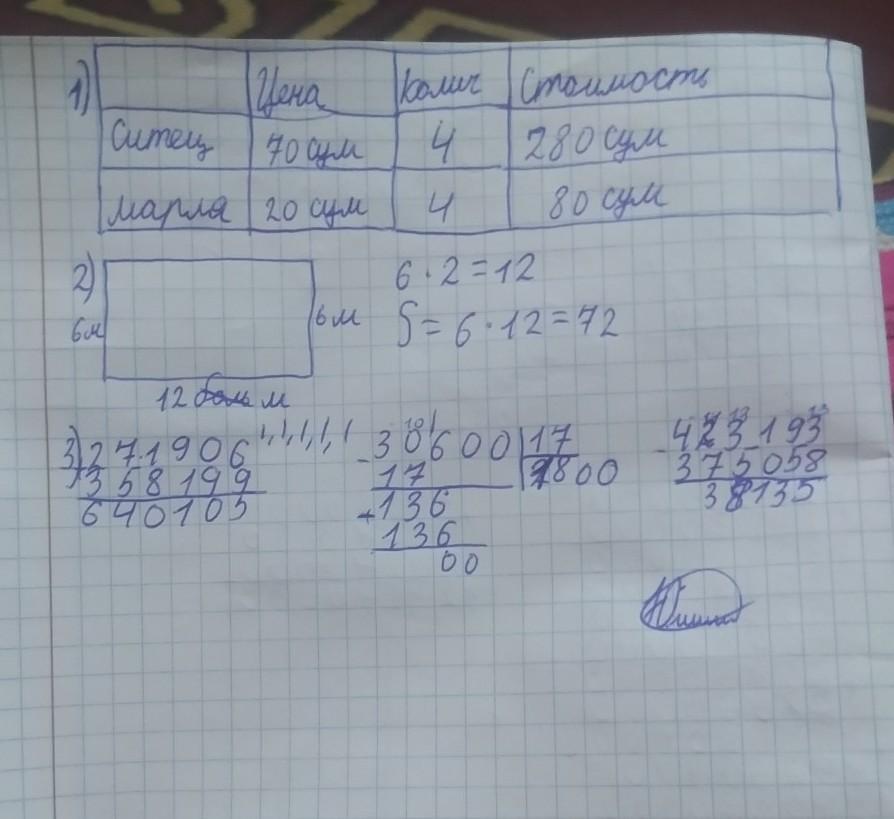 1) Цена колич Стоимость
Ситец 70 сум 4 280 сум
марля 20 сум 4 80 сум
2) 6 · 2 = 12
6м 6 м S = 6 · 12 = 72
12 м
3) 271906 - 30600 17 - 423193
358199 17 1800 375058
640105 136 38135
136
00